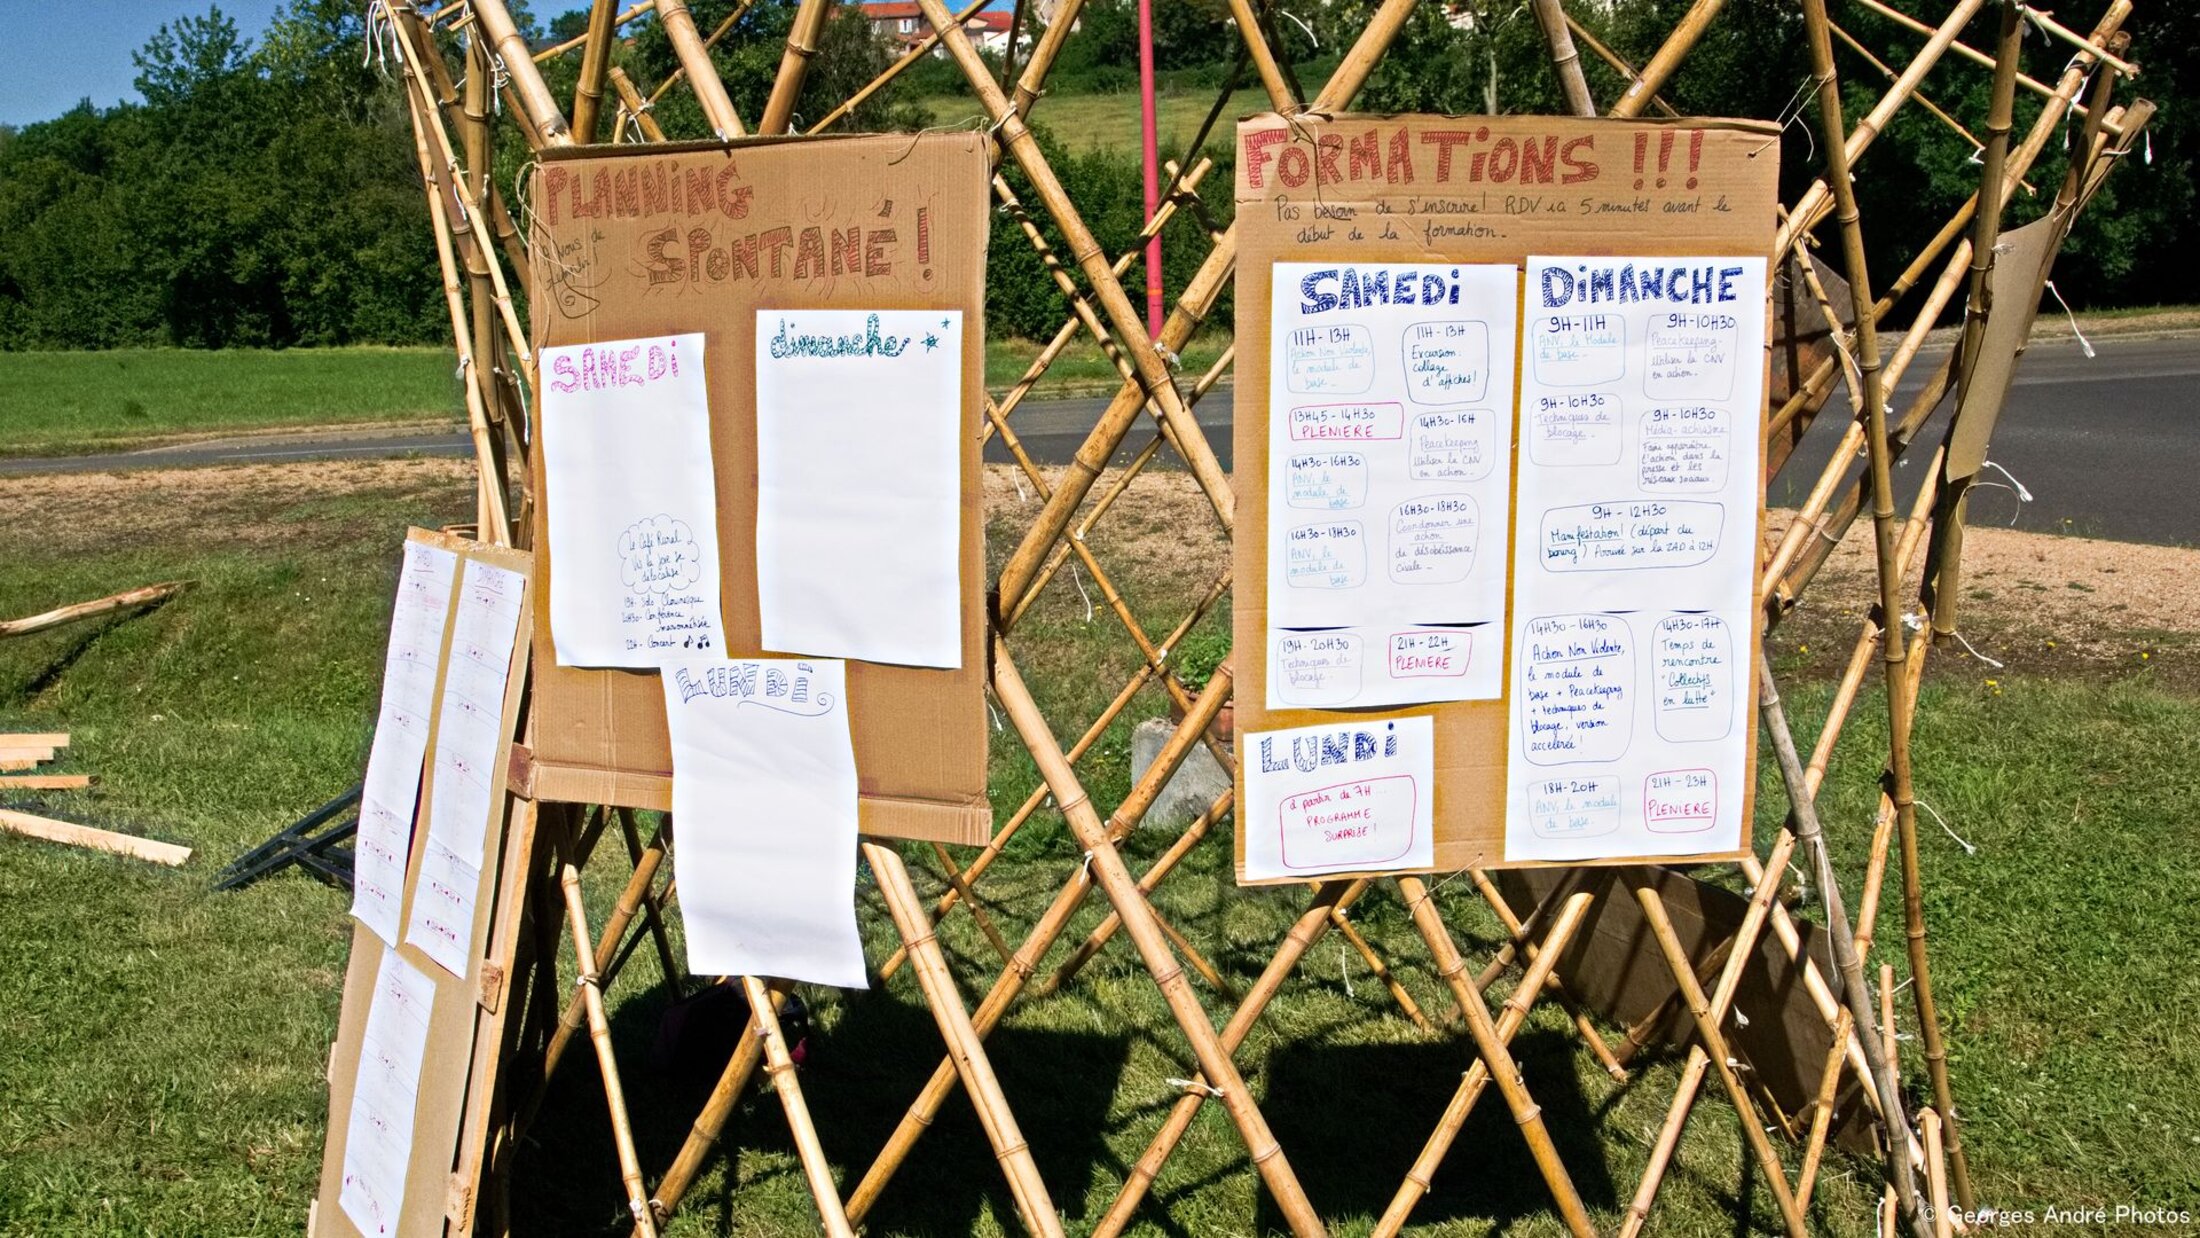 PLANNING
SPONTANÉ !
à vous de
SAMEDi
Le Café Rural
délocalise!
19H - Solo Clownesque
20H30 - Conférence
marionnétisée
22H - Concert
dimanche
LUNDi
FORMATiONS !!!
Pas besoin de s'inscrire! RDV ici 5 minutes avant le
début de la formation.
SAMEDi
11H - 13H
Action Non Violente,
le module de
base
11H - 13H
Excursion:
collage
d'affiches!
13H45 - 14H30
PLENIERE
14H30 - 16H
Peacekeeping
Utiliser la CNV
en action.
14H30 - 16H30
ANV, le
module de
base
16H30 - 18H30
Coordonner une
action
de désobéissance
civile
16H30 - 18H30
ANV, le
module de
base
19H - 20H30
Techniques de
blocage.
21H - 22H
PLENIERE
LUNDi
à partir de 7H...
PROGRAMME
SURPRISE!
DiMANCHE
9H - 11H
ANV, le Module
de base
9H - 10H30
Peacekeeping -
Utiliser la CNV
en action.
9H - 10H30
Techniques de
blocage
9H - 10H30
Média-activisme
Faire apparaître
l'action dans la
presse et les
réseaux sociaux
9H - 12H30
Manifestation! (départ du
bourg) Arrivée sur la ZAD à 12H
14H30 - 16H30
Action Non Violente,
le module de
base + Peacekeeping
+ techniques de
blocage, version
accélérée!
14H30 - 17H
Temps de
rencontre
"Collectifs
en lutte"
18H - 20H
ANV, le module
de base
21H - 23H
PLENIERE
SAMEDI
DIMANCHE
© Georges André Photos